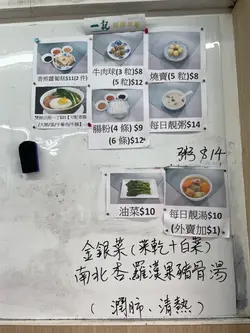 一起
香煎蘿蔔糕$11(2件)
牛肉球(3粒)$8
(5粒)$12
燒賣(5粒)
$8
腸粉(4條)$9
(6條)$12
每日靚粥$14
粥 $14
油菜$10
每日靚湯$10
(外賣加$1)
金銀菜(菜乾十白菜)
南北杏、羅漢果豬骨湯
(潤肺、清熱)